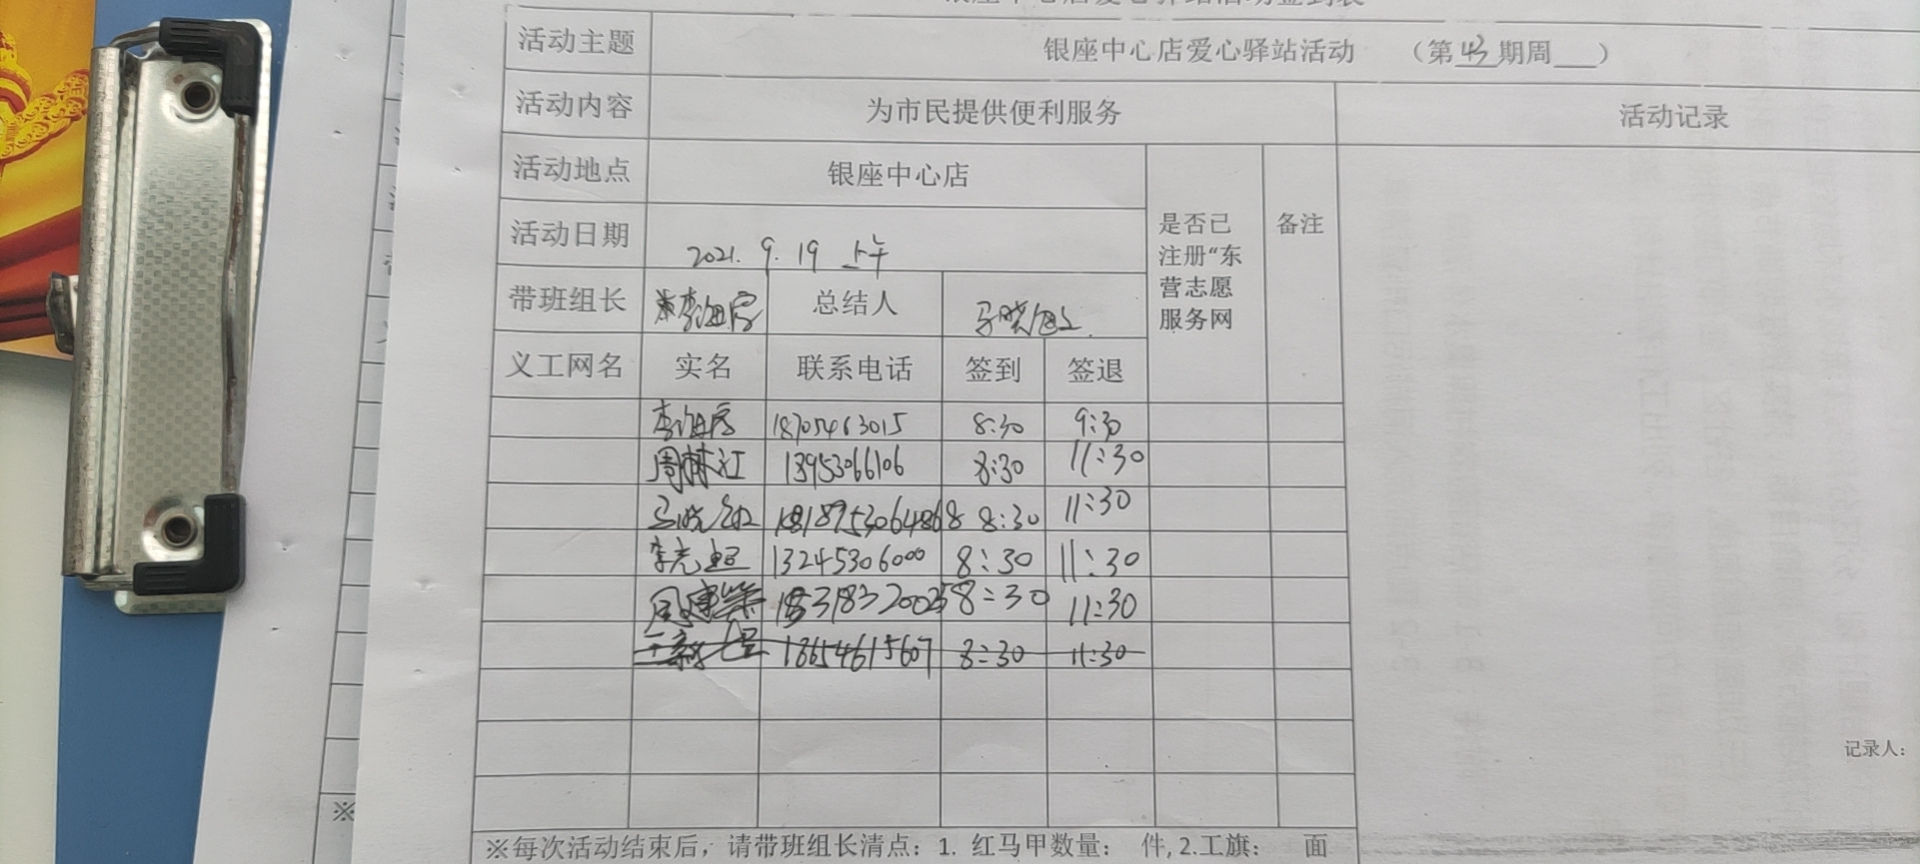 银座中心店爱心驿站活动签到表
活动主题 银座中心店爱心驿站活动 （第43期周 ）
活动内容 为市民提供便利服务 活动记录
活动地点 银座中心店
活动日期 2021. 9. 19 上午
是否已
注册“东
营志愿
服务网
备注
带班组长 总结人
义工网名 实名 联系电话 签到 签退
18705463015 8:30 9:30
周林江 13953066106 8:30 11:30
8:30 11:30
李志超 13245306000 8:30 11:30
8:30 11:30
18654615607 8:30 11:30
记录人：
※
※每次活动结束后，请带班组长清点：1. 红马甲数量： 件, 2.工旗： 面